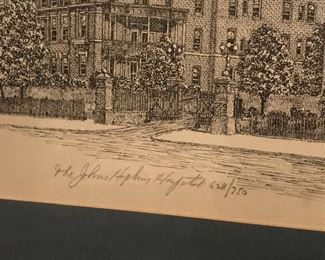 The Johns Hopkins Hospital 628/750